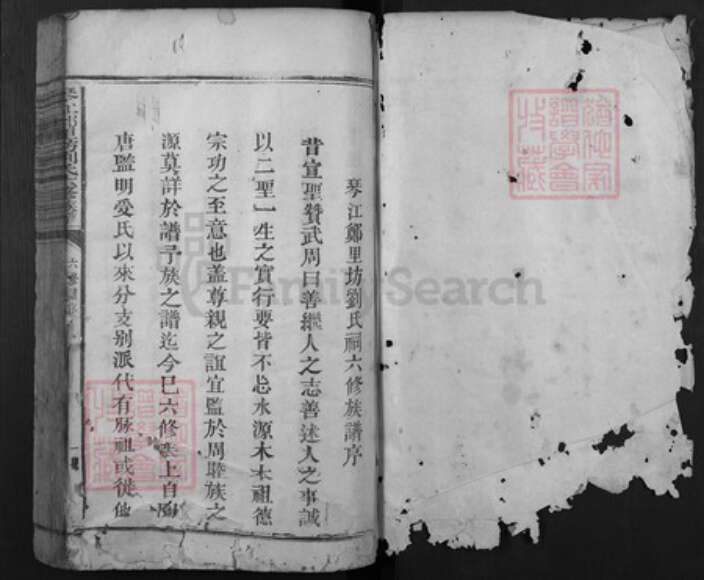 琴江鄭里坊劉氏祠六修族譜序
昔宣聖贊武周曰善繼人之志善述人之事誠
以二聖一生之實行要皆不忘水源木本祖德
宗功之至意也盖尊親之誼宜監於周睦族之
源莫詳於譜予族之譜迄今已六修矣上自陶
唐監明受氏以來分支别派代有脉祖或從他
六修
一號
FamilySearch
譜學會
收藏